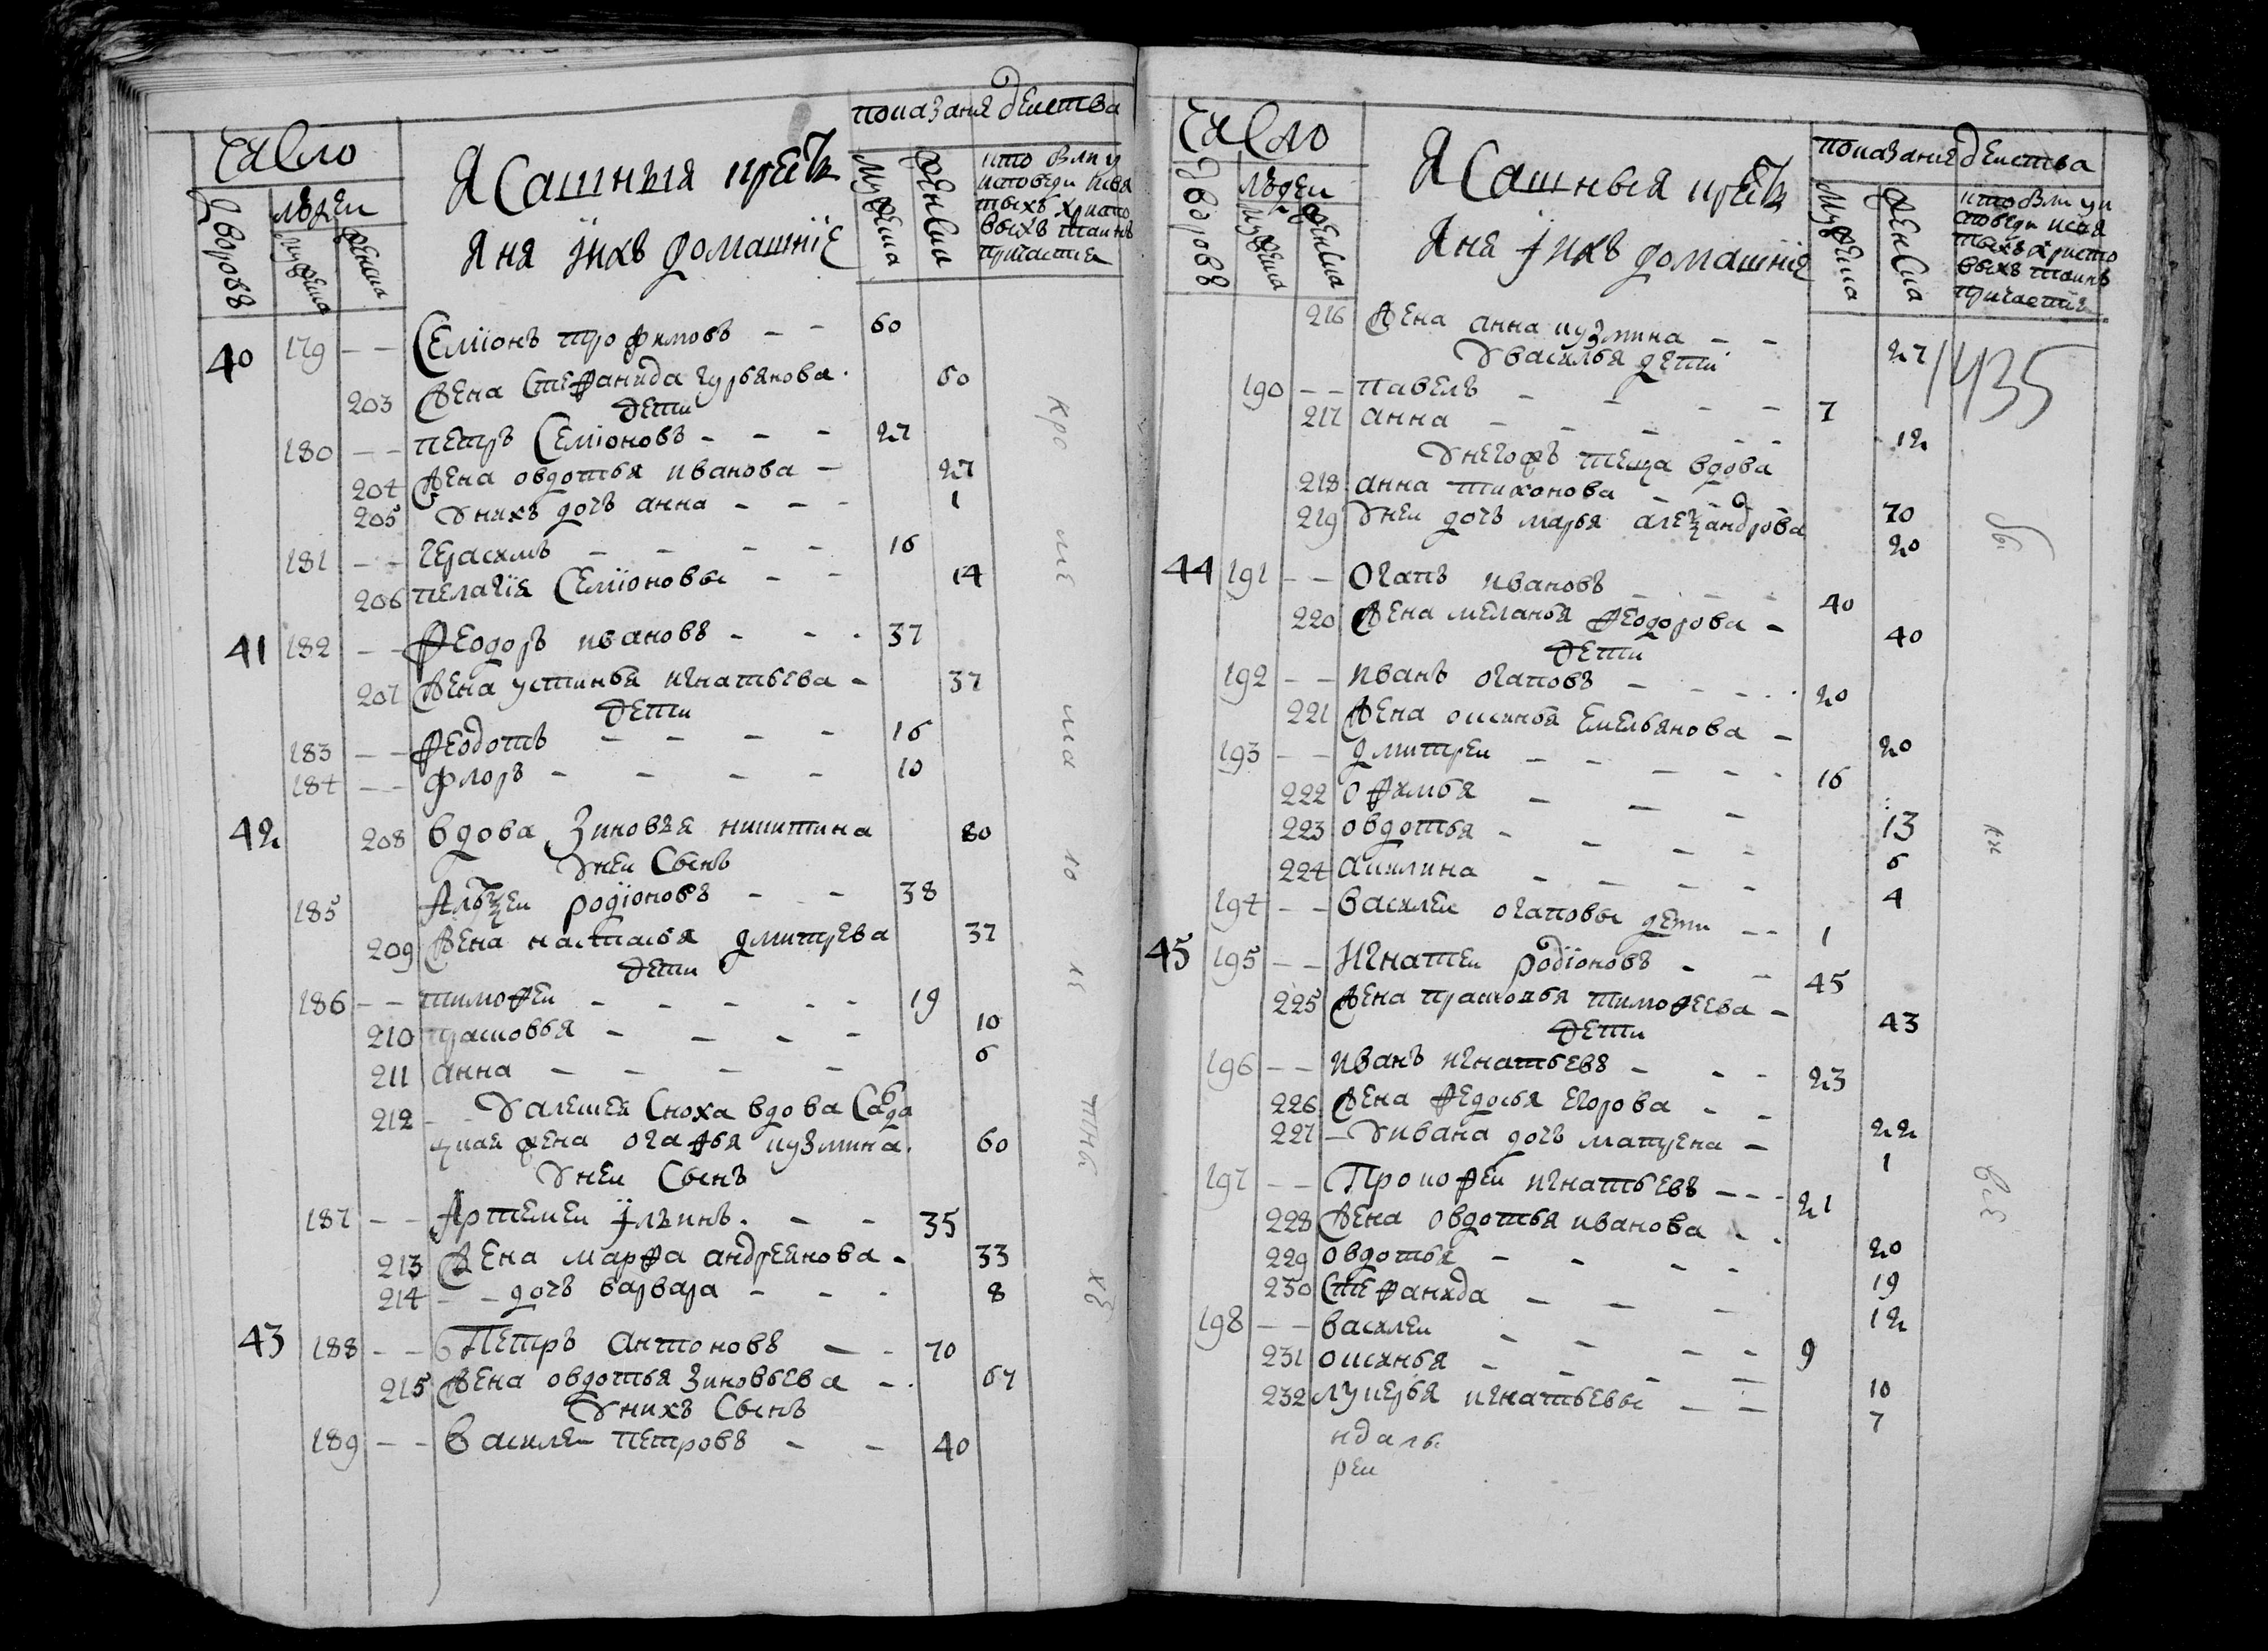 число
дворовъ
людеи
мужеска
женска
Ясашныя крестья
яня їихъ домашнїе
показание деиства
мужеска
женска
кто были у
исповеди исвя
тыхъ христо
выхъ таинъ
причастия
40 179 — — Семїонъ трофимовъ — — 60
203 Жена Стефанида гурьянова. 60
дети
180 — — петръ Семїоновъ — — — 27
204 Жена овдотья иванова — 27
205 Унихъ дочь анна — — — 1
181 — — герасимъ — — — — 16
206 пелагїя Семїоновы — — 14
41 182 — — Феодоръ ивановъ — — — 37
207 Жена устинья игнатьева — 37
дети
183 — — Феодотъ — — — — 16
184 — — флоръ — — — — 10
42 208 вдова Зиновья никитина 80
Унеи Сынъ
185 Алеѯеи родїоновъ — — 38
209 Жена настасья дмитрева 37
дети
186 — — тимофеи — — — — — 19
210 прасковья — — — — 10
211 анна — — — — 6
212 — Уалексея Сноха вдова Салда
цкая жена огафья кузмина. 60
Унеи Сынъ
187 — — Артемеи їльинъ. — — 35
213 Жена марфа андреянова — 33
214 — — дочь варвара — — — 8
43 188 — — Петръ антоновъ — — 70
215 Жена овдотья Зиновьева — . 67
Унихъ Сынъ
189 — — василеи петровъ — — 40
кро ме ма ло лѣ тны хъ
число
дворовъ
людеи
мужеска
женска
Ясашныя крестья
яня їихъ домашнїе
показание деиства
мужеска
женска
кто были у и
споведи исвя
тыхъ христо
выхъ таинъ
причастия
1435
216 Жена анна кузмина — — 27
Увасилья дети
190 — — павелъ — — — — 7
217 анна — — — — 12
Унегожъ теща вдова
218 анна тихонова — — 70
219 Унеи дочь марья алеѯандрова 20
44 191 — — Огапъ ивановъ — — — 40
220 Жена меланья Феодорова — 40
дети
192 — — иванъ огаповъ — — — 20
221 Жена оксинья Емельянова — 20
193 — — дмитреи — — — — 16
222 офимья — — — 13
223 овдотья — — — — 6
224 акилина — — — — 4
194 — — василеи огаповы дети — — 1
45 195 — — Игнатеи родїоновъ — — 45
225 Жена прасковья тимофеева — 43
дети
196 — — иванъ игнатьевъ — — — 23
226 Жена Федосья Егорова — — 22
227 — Уивана дочь матрена — 1
197 — — Прокофеи игнатьевъ — — — 21
228 Жена овдотья иванова — . 20
229 овдотья — — — — 19
230 Стефанида — — — 12
198 — — василеи — — — — 9
231 оксинья — — — — 10
232 лукерья игнатьевы — — 7
бы
ли
всѣ